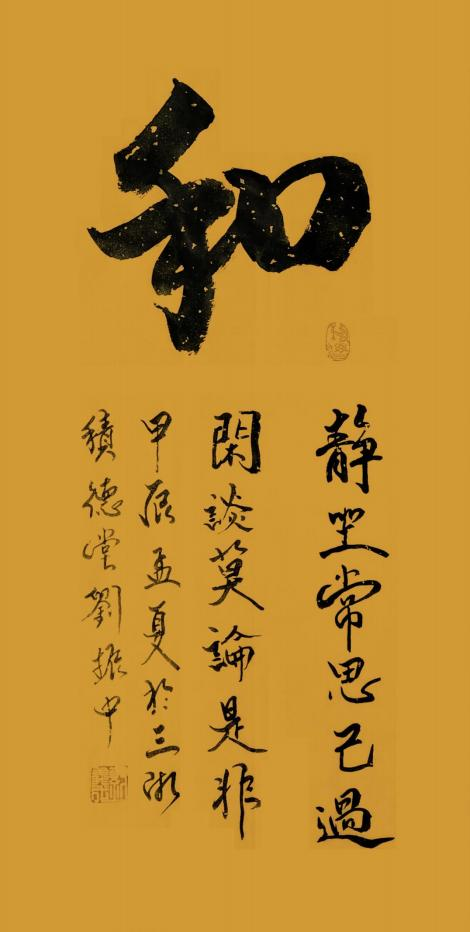 和
靜坐常思己過
閑談莫論是非
甲辰孟夏於三湘
積德堂劉振中